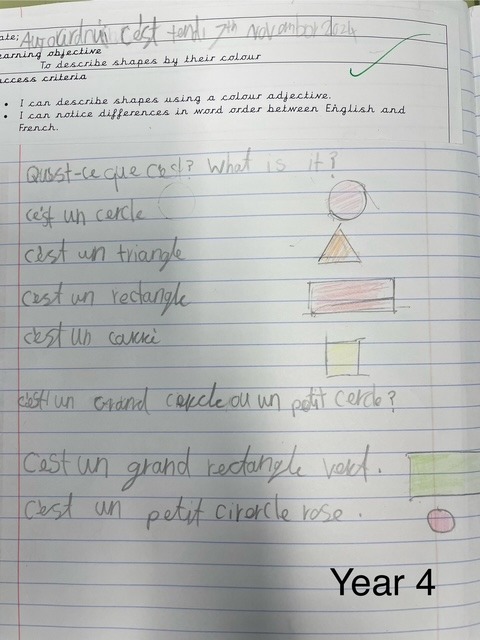 Aujourdhui C'est tendi 7th November 2024
ate;
earning objective
To describe shapes by their colour
uccess criteria
• I can describe shapes using a colour adjective.
• I can notice differences in word order between English and
French.
Quest-ce que c'est? What is it?
c'est un cercle
c'est un triangle
c'est un rectangle
c'est un carré
c'est un grand cercle ou un petit cercle?
C'est un grand rectangle vert.
C'est un petit cirorcle rose.
Year 4